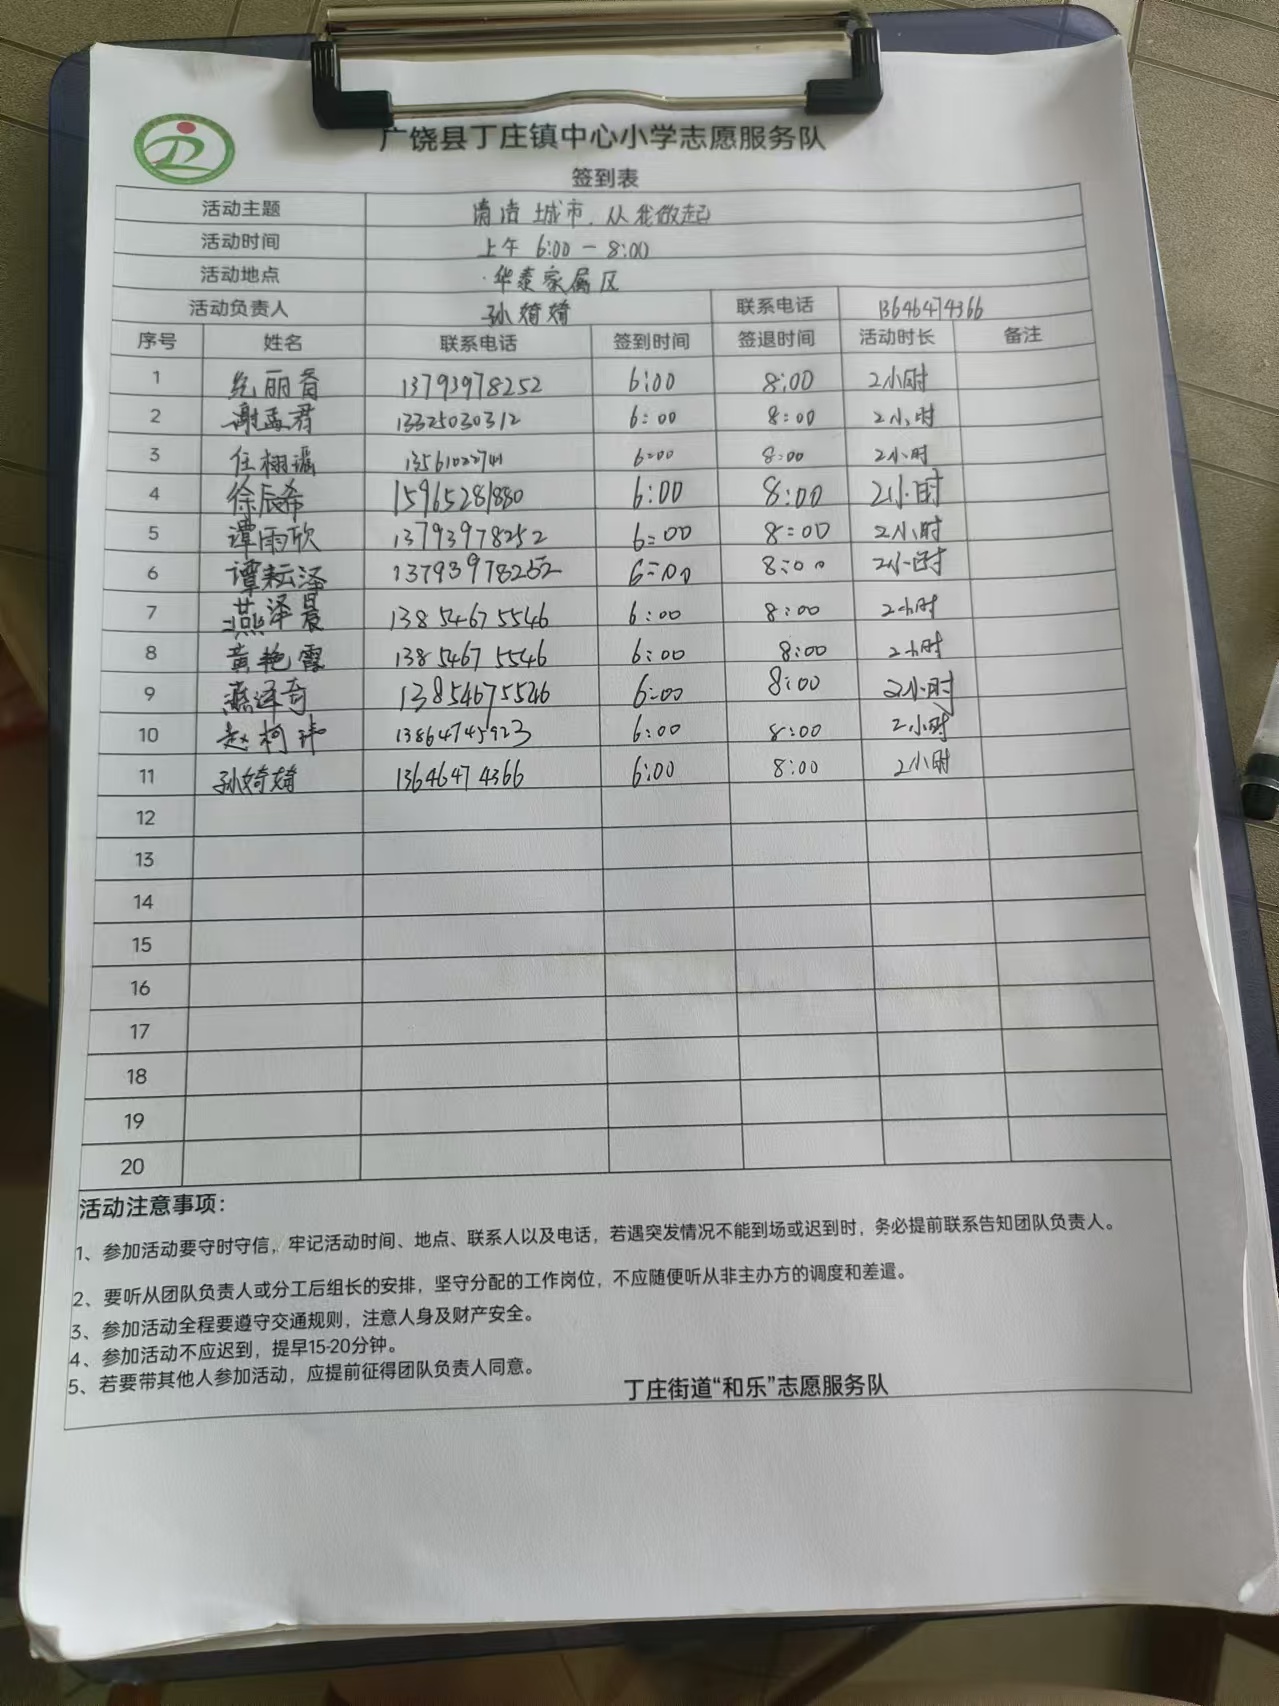 广饶县丁庄镇中心小学志愿服务队
签到表
活动主题 清洁城市,从我做起
活动时间 上午 6:00 - 8:00
活动地点 华泰家属区
活动负责人 孙婍婍 联系电话 13646474366
序号 姓名 联系电话 签到时间 签退时间 活动时长 备注
1 13793978252 6:00 8:00 2小时
2 谢孟君 13325030312 6:00 8:00 2小时
3 6:00 8:00 2小时
4 徐辰希 15965281880 6:00 8:00 2小时
5 谭雨欣 13793978252 6:00 8:00 2小时
6 谭耘泽 13793978252 6:00 8:00 2小时
7 燕泽晨 13854675546 6:00 8:00 2小时
8 黄艳霞 13854675546 6:00 8:00 2小时
9 燕泽奇 13854675546 6:00 8:00 2小时
10 赵柯玮 13864745923 6:00 8:00 2小时
11 孙婍婍 13646474366 6:00 8:00 2小时
12
13
14
15
16
17
18
19
20
活动注意事项:
1、参加活动要守时守信,牢记活动时间、地点、联系人以及电话,若遇突发情况不能到场或迟到时,务必提前联系告知团队负责人。
2、要听从团队负责人或分工后组长的安排,坚守分配的工作岗位,不应随便听从非主办方的调度和差遣。
3、参加活动全程要遵守交通规则,注意人身及财产安全。
4、参加活动不应迟到,提早15-20分钟。
5、若要带其他人参加活动,应提前征得团队负责人同意。
丁庄街道“和乐”志愿服务队